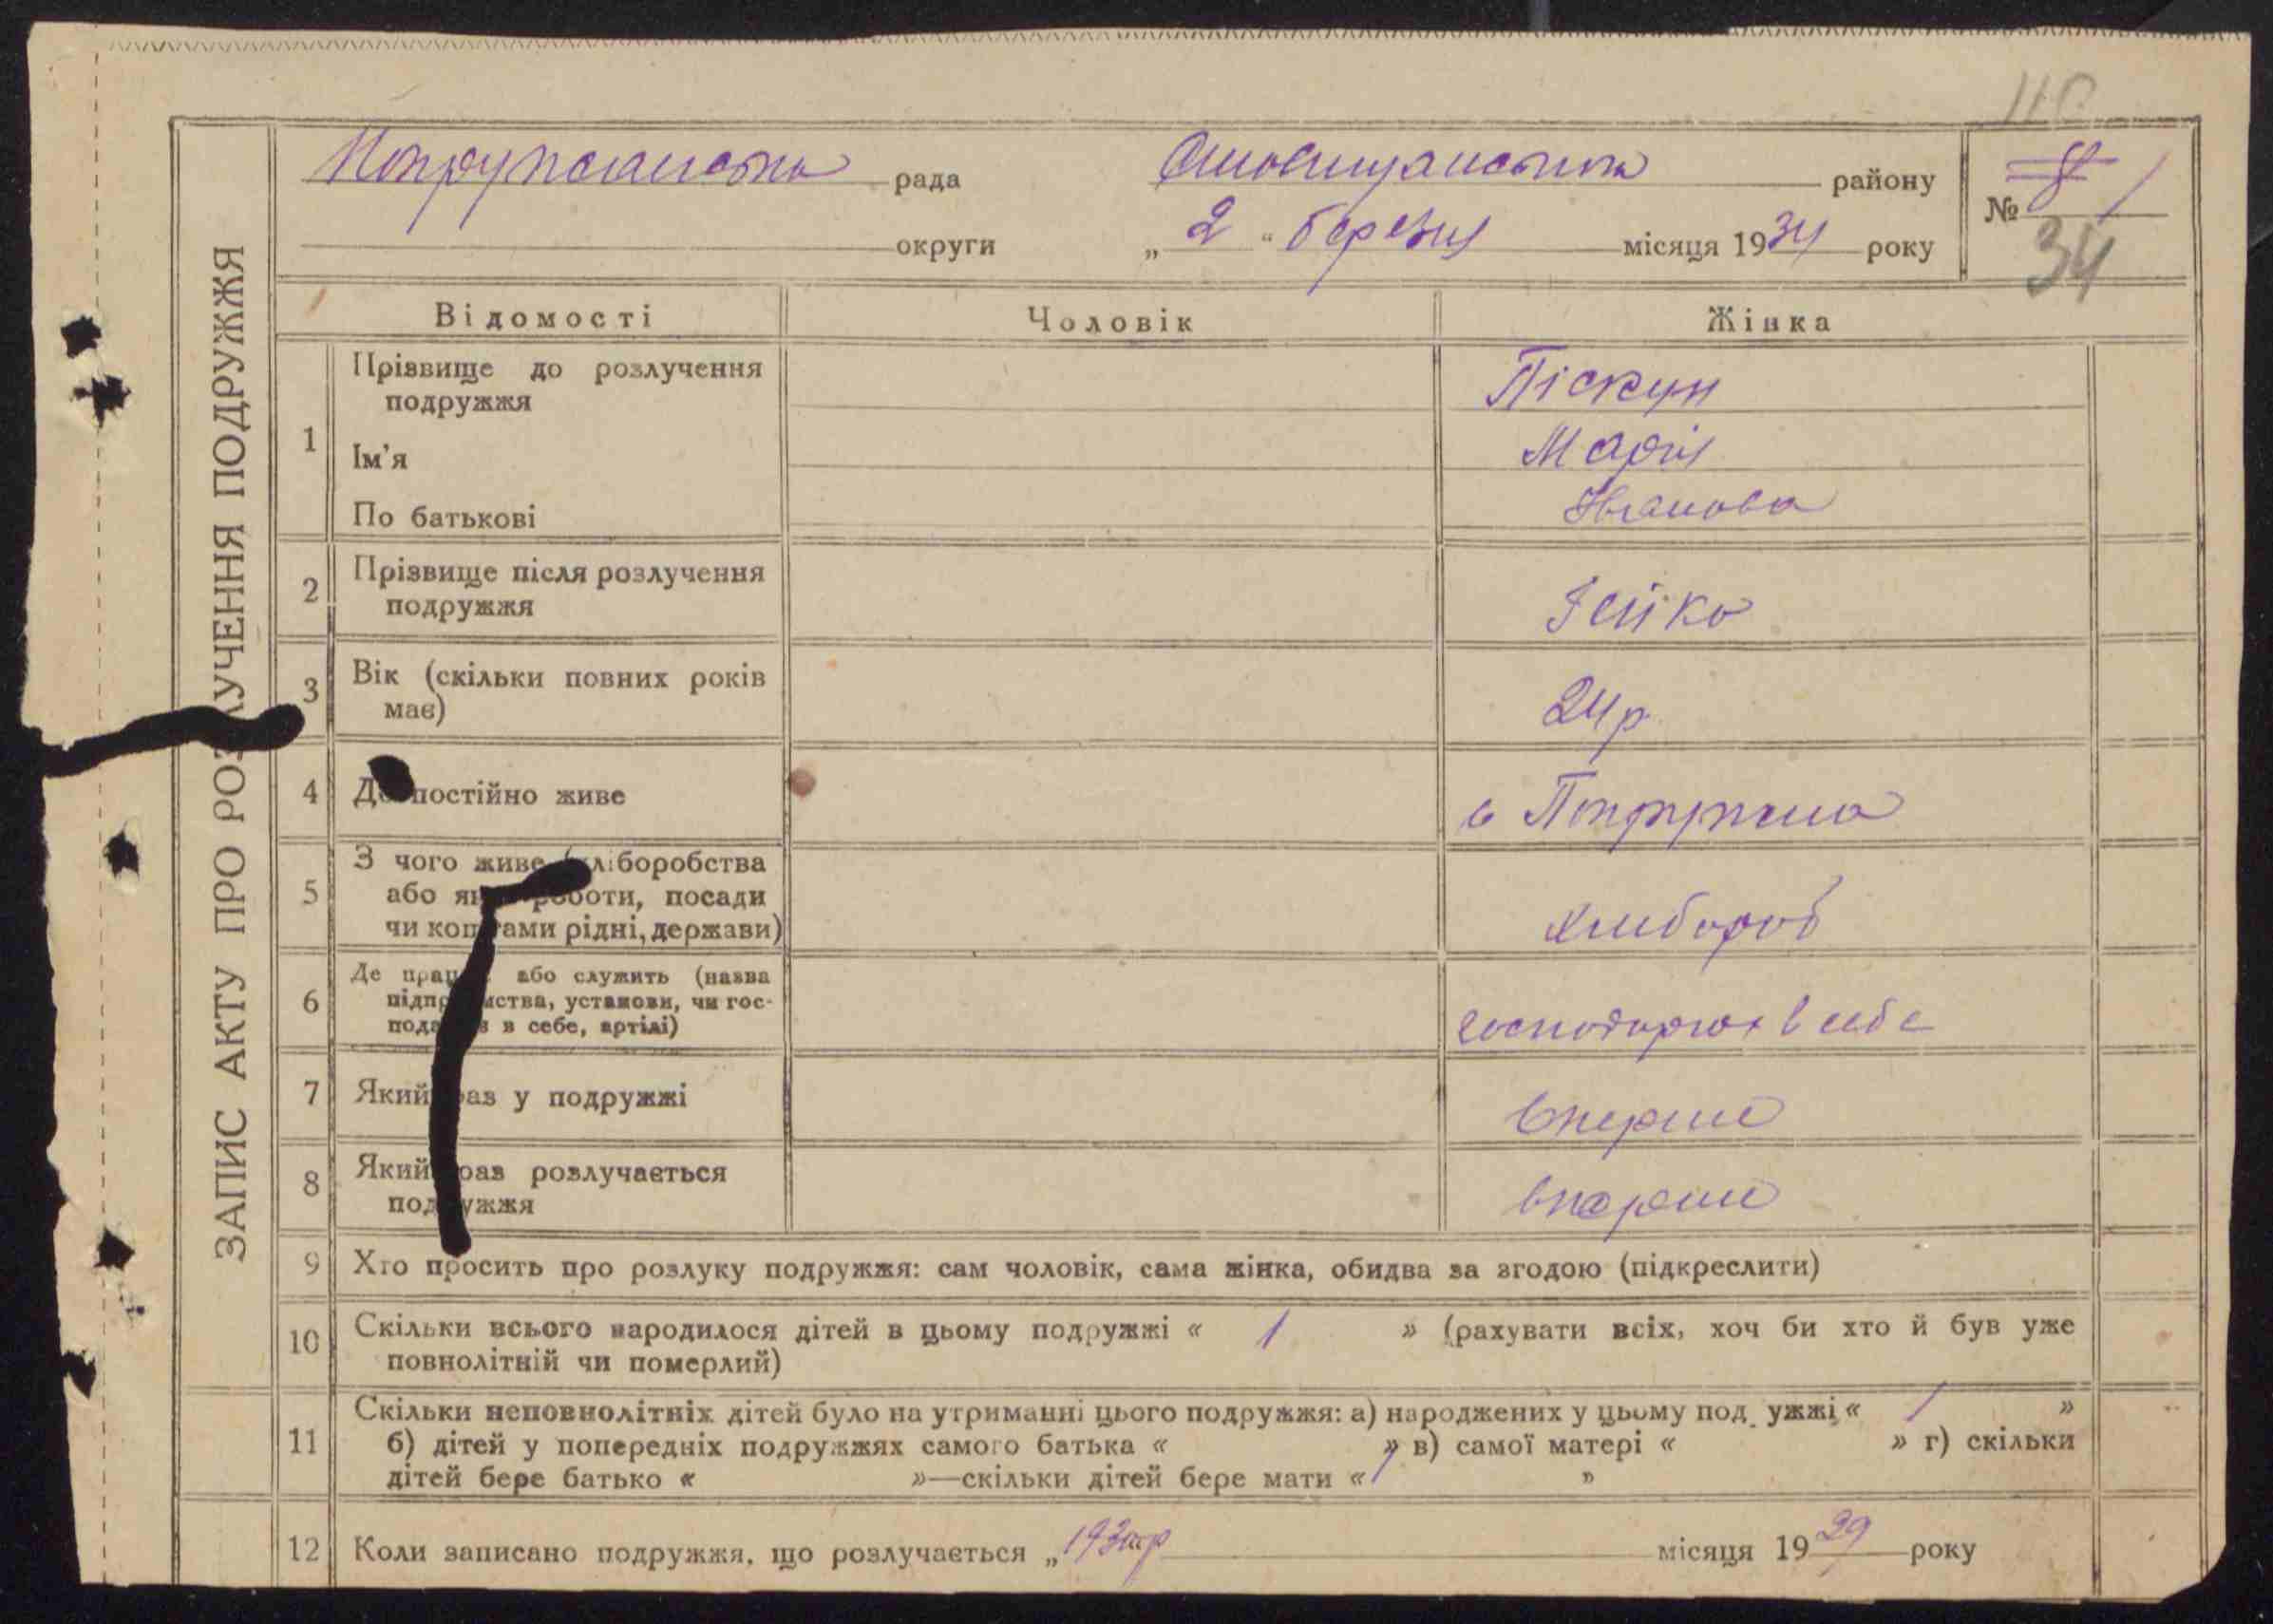 116
Потрупсанська рада Ставищанського району № 8 1
округи „ 2 “ березня місяця 1934 року 34
ЗАПИС АКТУ ПРО РОЗЛУЧЕННЯ ПОДРУЖЖЯ
Відомості Чоловік Жінка
1 Прізвище до розлучення Піскун
подружжя
Ім’я Марія
По батькові Іванова
2 Прізвище після розлучення
подружжя
3 Вік (скільки повних років 24 р
має)
4 Де постійно живе
5 З чого живе (хліборобства
або якої роботи, посади хлибороб
чи коштами рідні, держави)
6 Де працює або служить (назва
підприємства, установи, чи гос-
подарює в себе, артілі) господарює в себе
7 Який раз у подружжі вперше
8 Який раз розлучається вперше
подружжя
9 Хто просить про розлуку подружжя: сам чоловік, сама жінка, обидва за згодою (підкреслити)
10 Скільки всього народилося дітей в цьому подружжі « 1 » (рахувати всіх, хоч би хто й був уже
повнолітній чи померлий)
11 Скільки неповнолітніх дітей було на утриманні цього подружжя: а) народжених у цьому подружжі « 1 »
б) дітей у попередніх подружжях самого батька « » в) самої матері « » г) скільки
дітей бере батько « »—скільки дітей бере мати « 1 »
12 Коли записано подружжя, що розлучається „ місяця 1929 року